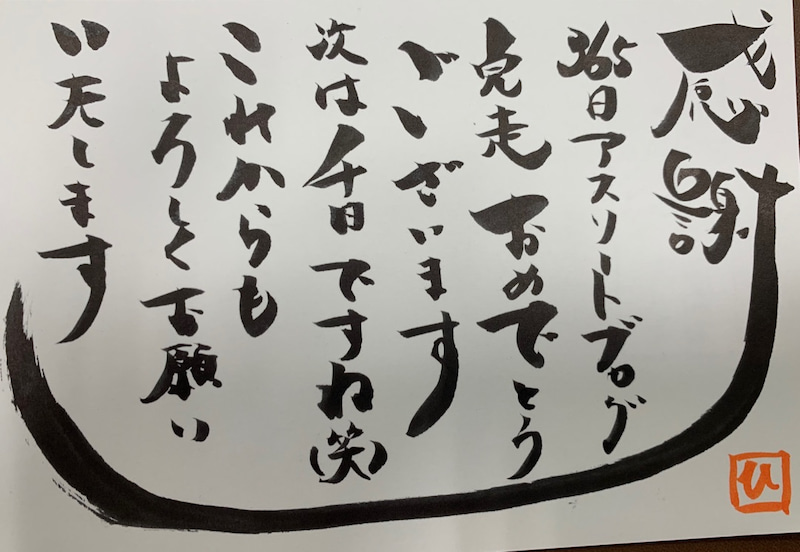 感謝
365日アスリートブログ
完走おめでとう
ございます
次は千日ですね(笑)
これからも
よろしくお願い
いたします
ひ